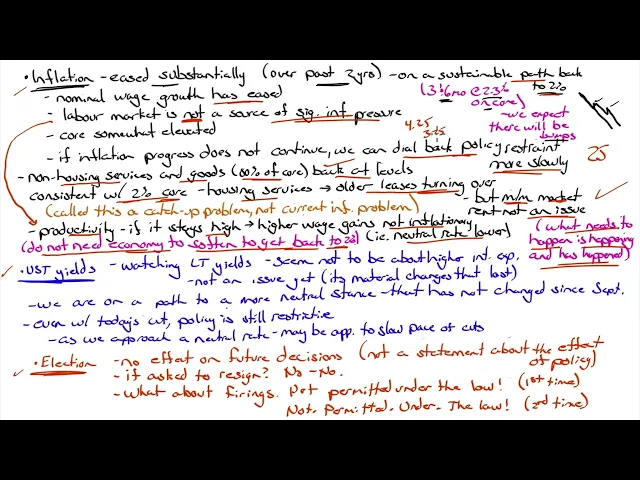 • Inflation - eased substantially (over past 2yrs) - on a sustainable path back to 2%
(3 + 6mo @ 2.3% on core)
- nominal wage growth has eased
- we expect there will be bumps
- labour market is not a source of sig. inf pressure
- core somewhat elevated
4.25
3.25
- if inflation progress does not continue, we can dial back policy restraint more slowly
25
- non-housing services and goods (80% of core) back at levels
consistent w/ 2% core - housing services → older leases turning over
- but m/m market rent not an issue
(called this a catch-up problem, not current inf. problem)
- productivity - if it stays high → higher wage gains not inflationary
(i.e. neutral rate lower)
(do not need economy to soften to get back to 2%)
(what needs to happen is happening and has happened)
• UST yields - watching LT yields - seem not to be about higher inf. exp.
- not an issue yet (its material changes that last)
- we are on a path to a more neutral stance - that has not changed since Sept.
- even w/ todays cut, policy is still restrictive
- as we approach a neutral rate - may be app. to slow pace of cuts
• Election - no effect on future decisions (not a statement about the effect of policy)
- if asked to resign? No - No.
- What about firings. Not permitted under the law! (1st time)
Not. Permitted. Under. The law! (2nd time)